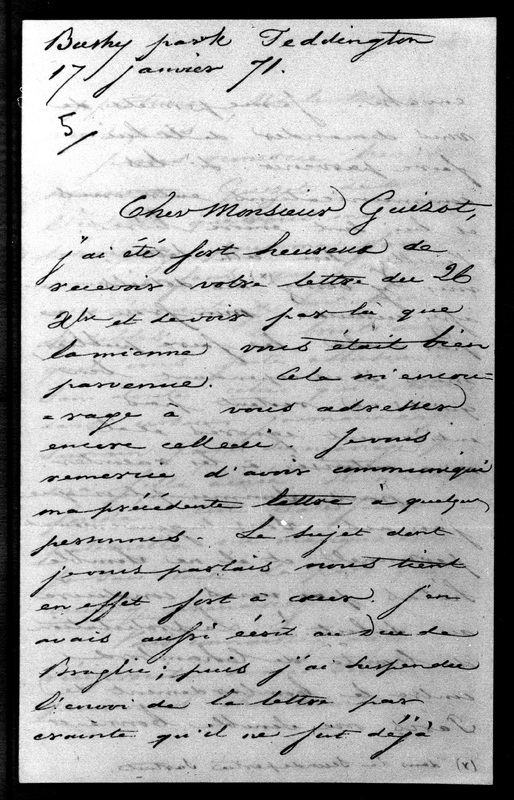 Bushy park Teddington
17 janvier 71.
5/
Cher Monsieur Guizot,
j'ai été fort heureux de
recevoir votre lettre du 26
Xbr et de voir par là que
la mienne vous était bien
parvenue. Cela m'encou-
-rage à vous adresser
encore celle ci. Je vous
remercie d'avoir communiqué
ma précédente lettre à quelques
personnes. Le sujet dont
je vous parlais nous tient
en effet fort à cœur. J'en
avais aussi écrit au Duc de
Broglie; puis j'ai suspendu
l'envoi de la lettre par
crainte qu'il ne fut déjà